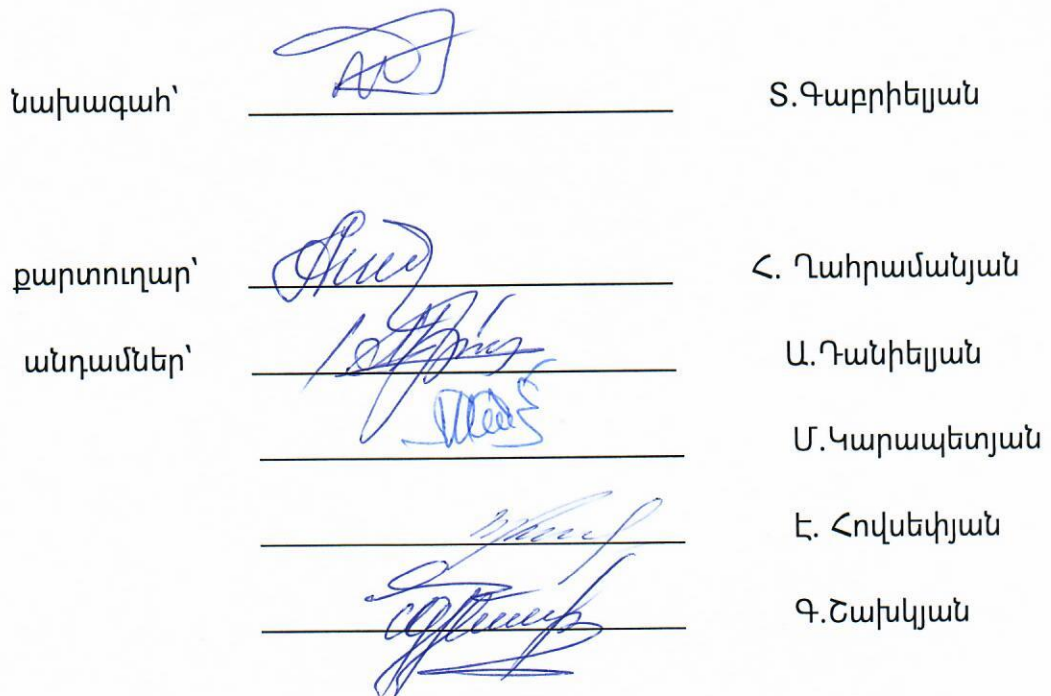 նախագահ՝ Տ.Գաբրիելյան
քարտուղար՝ Հ. Ղահրամանյան
անդամներ՝ Ա.Դանիելյան
Մ.Կարապետյան
Է. Հովսեփյան
Գ.Շախկյան